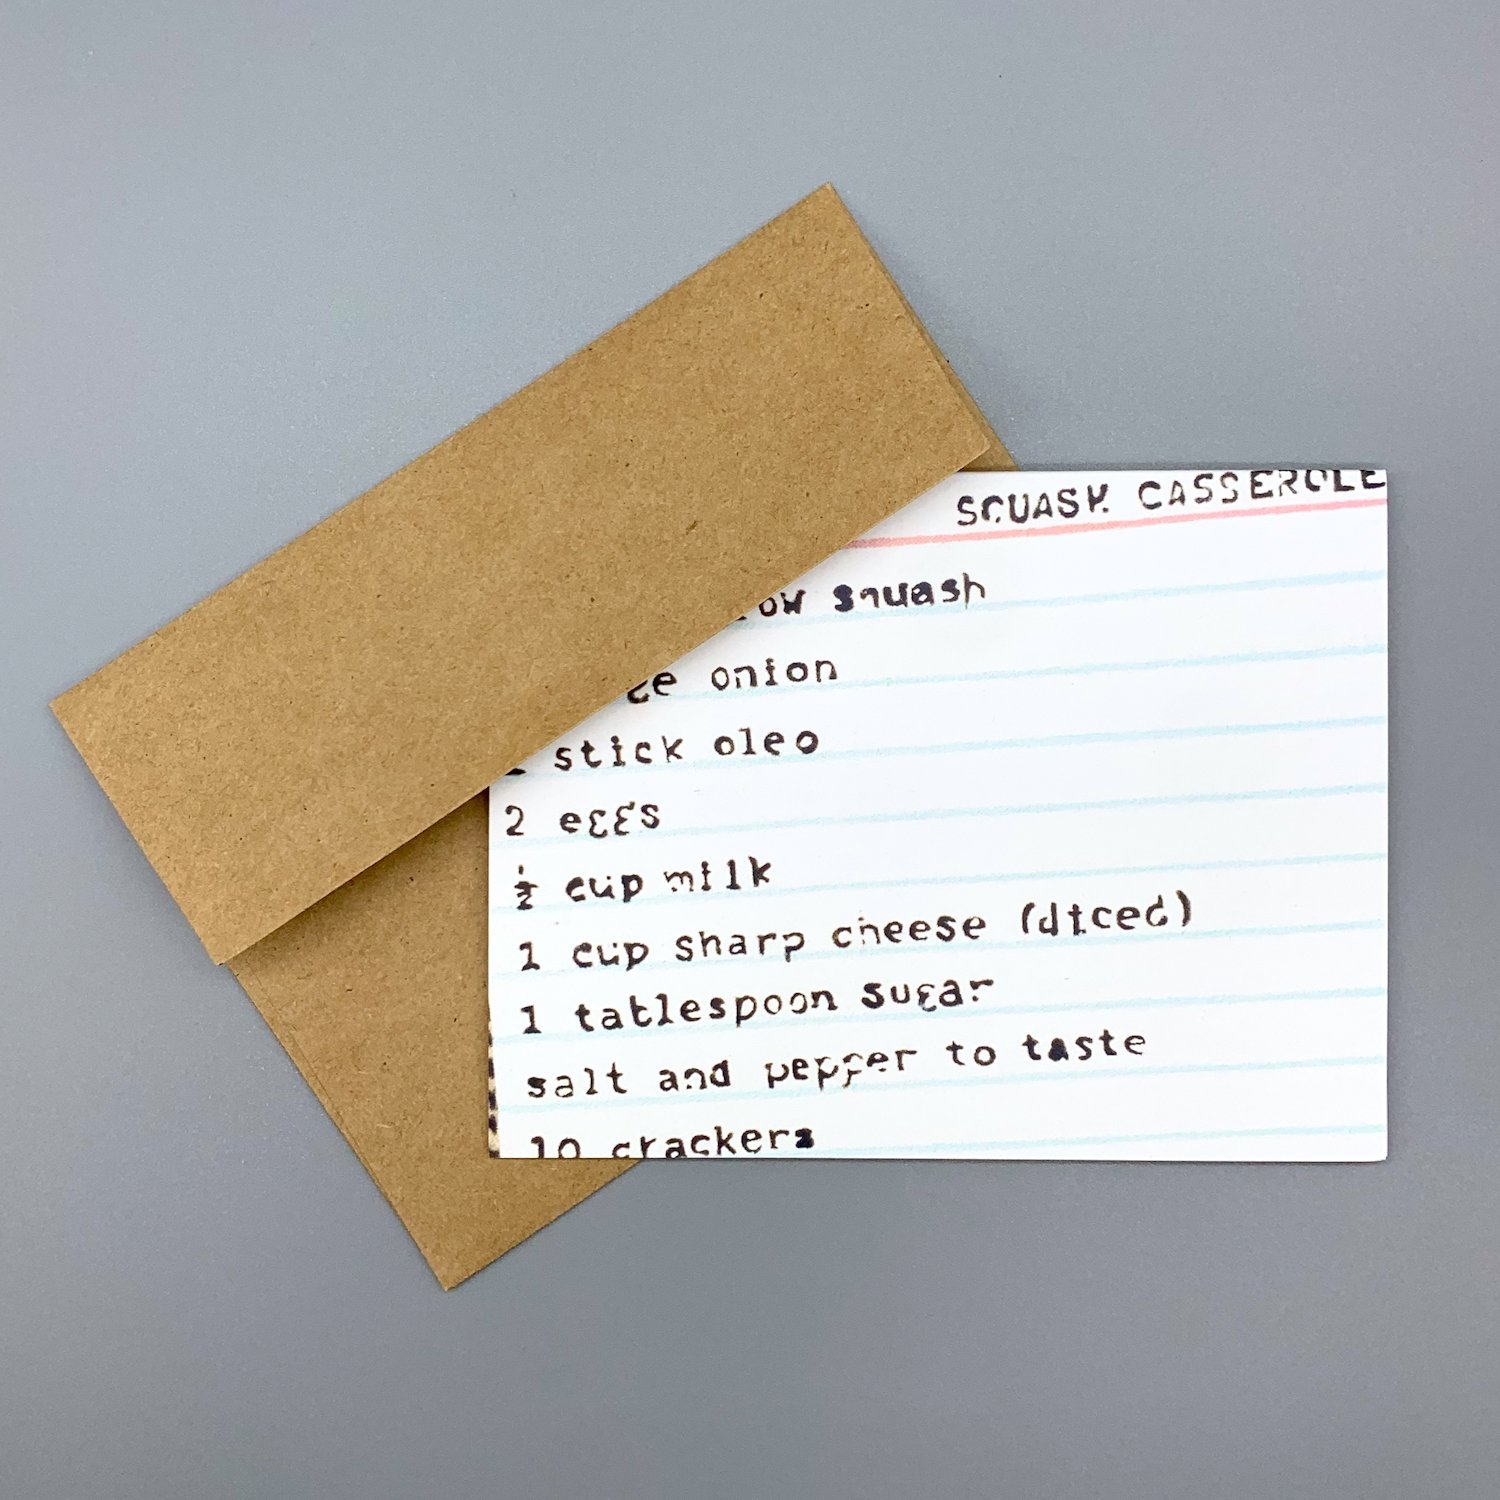 SQUASH CASSEROLE
squash
onion
stick oleo
2 eggs
½ cup milk
1 cup sharp cheese (diced)
1 tablespoon sugar
salt and pepper to taste
10 crackers